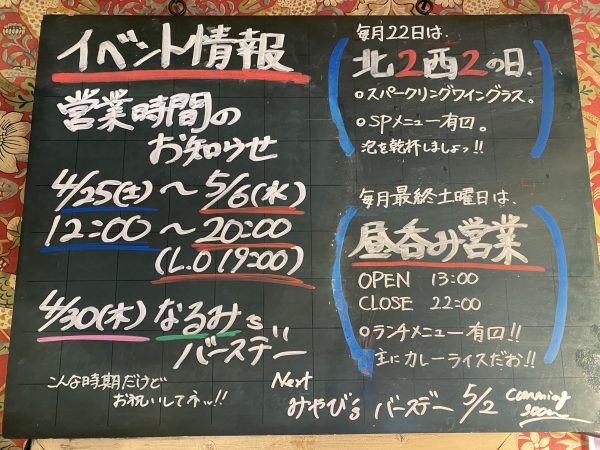 イベント情報
営業時間の
お知らせ
4/25(土)～5/6(水)
12:00～20:00
(L.O 19:00)
4/30(木)なるみ's
バースデー
こんな時期だけど
お祝いしてネッ!!
毎月22日は、
北2西2の日、
○スパークリングワイングラス。
○SPメニュー有回。
泡を乾杯しましょっ!!
毎月最終土曜日は、
昼呑み営業
OPEN 13:00
CLOSE 22:00
○ランチメニュー有回!!
主にカレーライスだお!!
Next
みやび's バースデー 5/2 Comming
soon